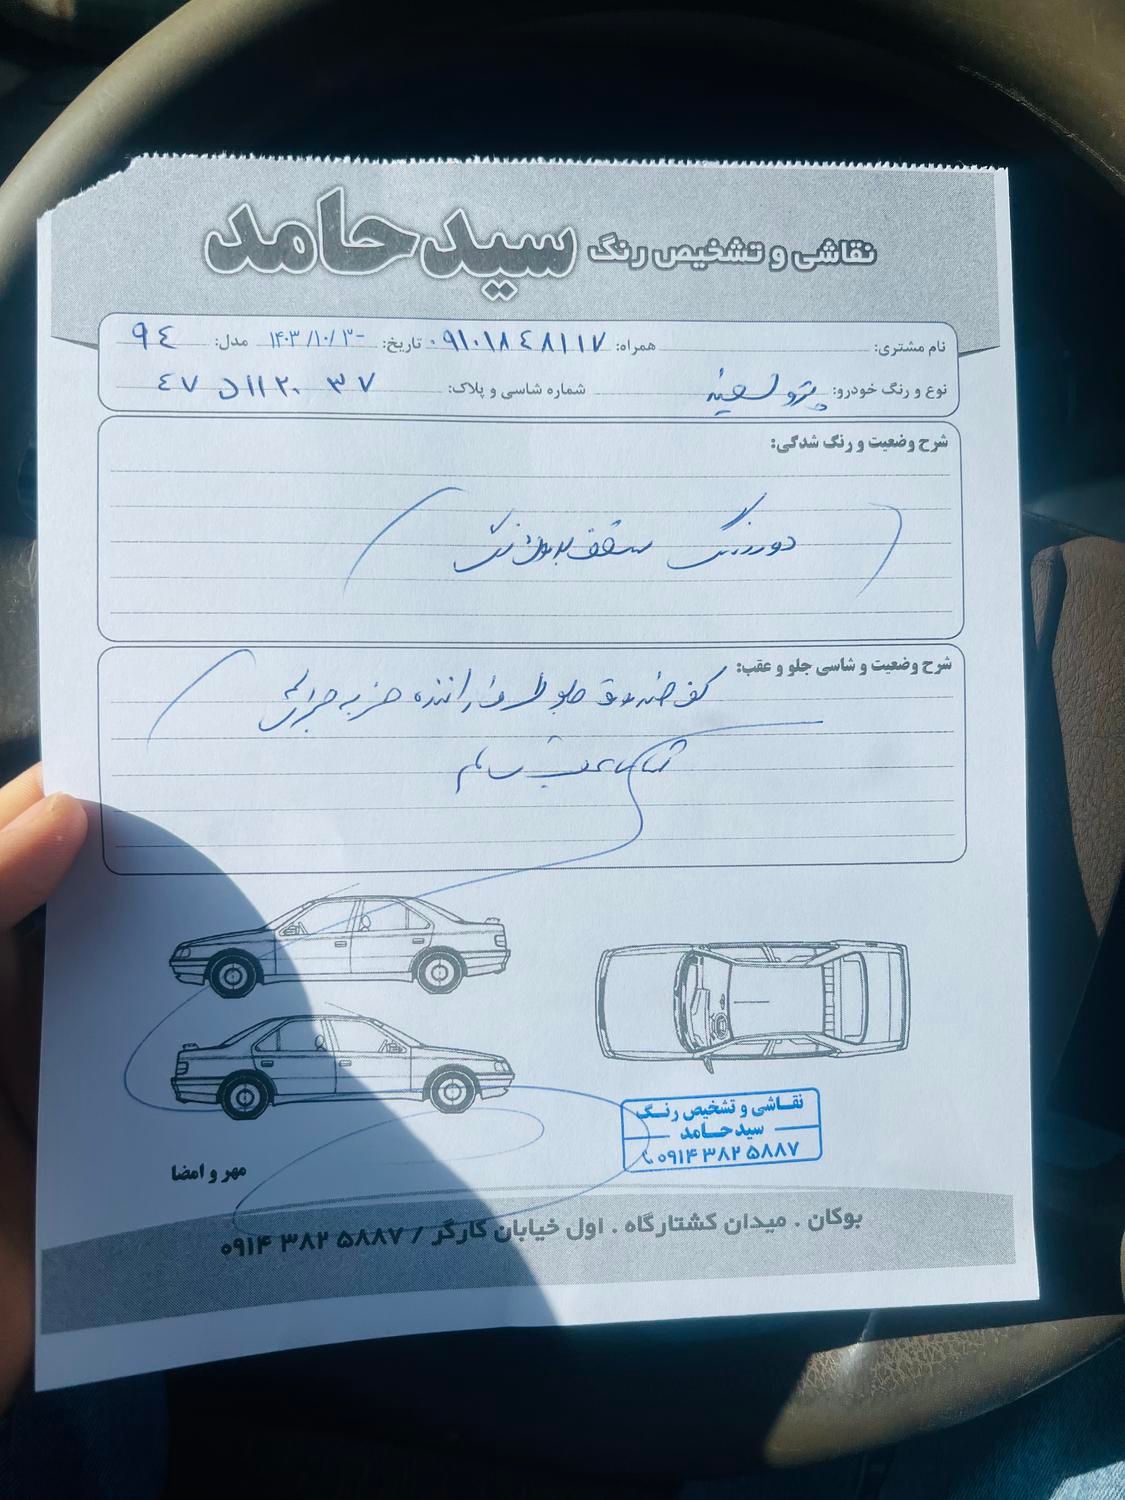 نقاشی و تشخیص رنگ سیدحامد
نام مشتری: همراه: ۰۹۱۰۱۸۴۸۱۱۷ تاریخ: ۱۴۰۳/۱۰/۳۰ مدل: ۹۴
نوع و رنگ خودرو: پژو سفید شماره شاسی و پلاک: ۳۷ ۱۱۲۰ د ۴۷
شرح وضعیت و رنگ شدگی:
دور رنگ سقف بدون رنگ
شرح وضعیت و شاسی جلو و عقب:
کف صندوق جلو طرف راننده ضربه جزئی
شاسی عقب سالم
نقاشی و تشخیص رنگ
سیدحامد
۰۹۱۴ ۳۸۲ ۵۸۸۷
مهر و امضا
بوکان . میدان کشتارگاه . اول خیابان کارگر / ۵۸۸۷ ۳۸۲ ۰۹۱۴